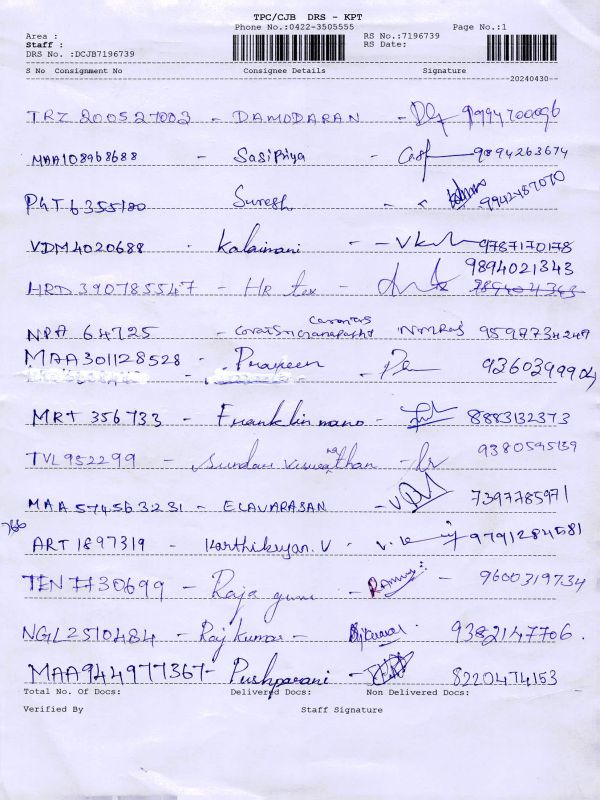 TPC/CJB DRS - KPT
Phone No.:0422-3505555 Page No.:1
Area :
Staff : RS No.:7196739
DRS No. :DCJB7196739 RS Date:
S No Consignment No Consignee Details Signature
20240430
TRZ 200527002 - DAMODARAN - 9994700096
MAA108968688 - Sasipriya - 9894263674
PGT 6355180 Suresh - 9942487070
VDM4020688 - Kalaimani - - 9787170178
9894021343
HRD 390785547 - HR tex -
NPA 64725 - Caronics NMRaj 9597734249
MAA301128528 - Praveen - 9360399904
MRT 356733 - Franklin mano - 8883132373
TVL 952299 - Sundari Viswanathan - 9380595139
MAA 574563231 - ELAVARASAN - 7397785971
766
ART 1897319 - Karthikeyan. V - 9791284581
TEN 1130699 - Raja guru - Ramu - 9600319734
NGL2510484 - Rajkumar - Rajkumar . 9382147706 .
MAA944977367 - Pushparani - 8220474153
Total No. Of Docs: Delivered Docs: Non Delivered Docs:
Verified By Staff Signature